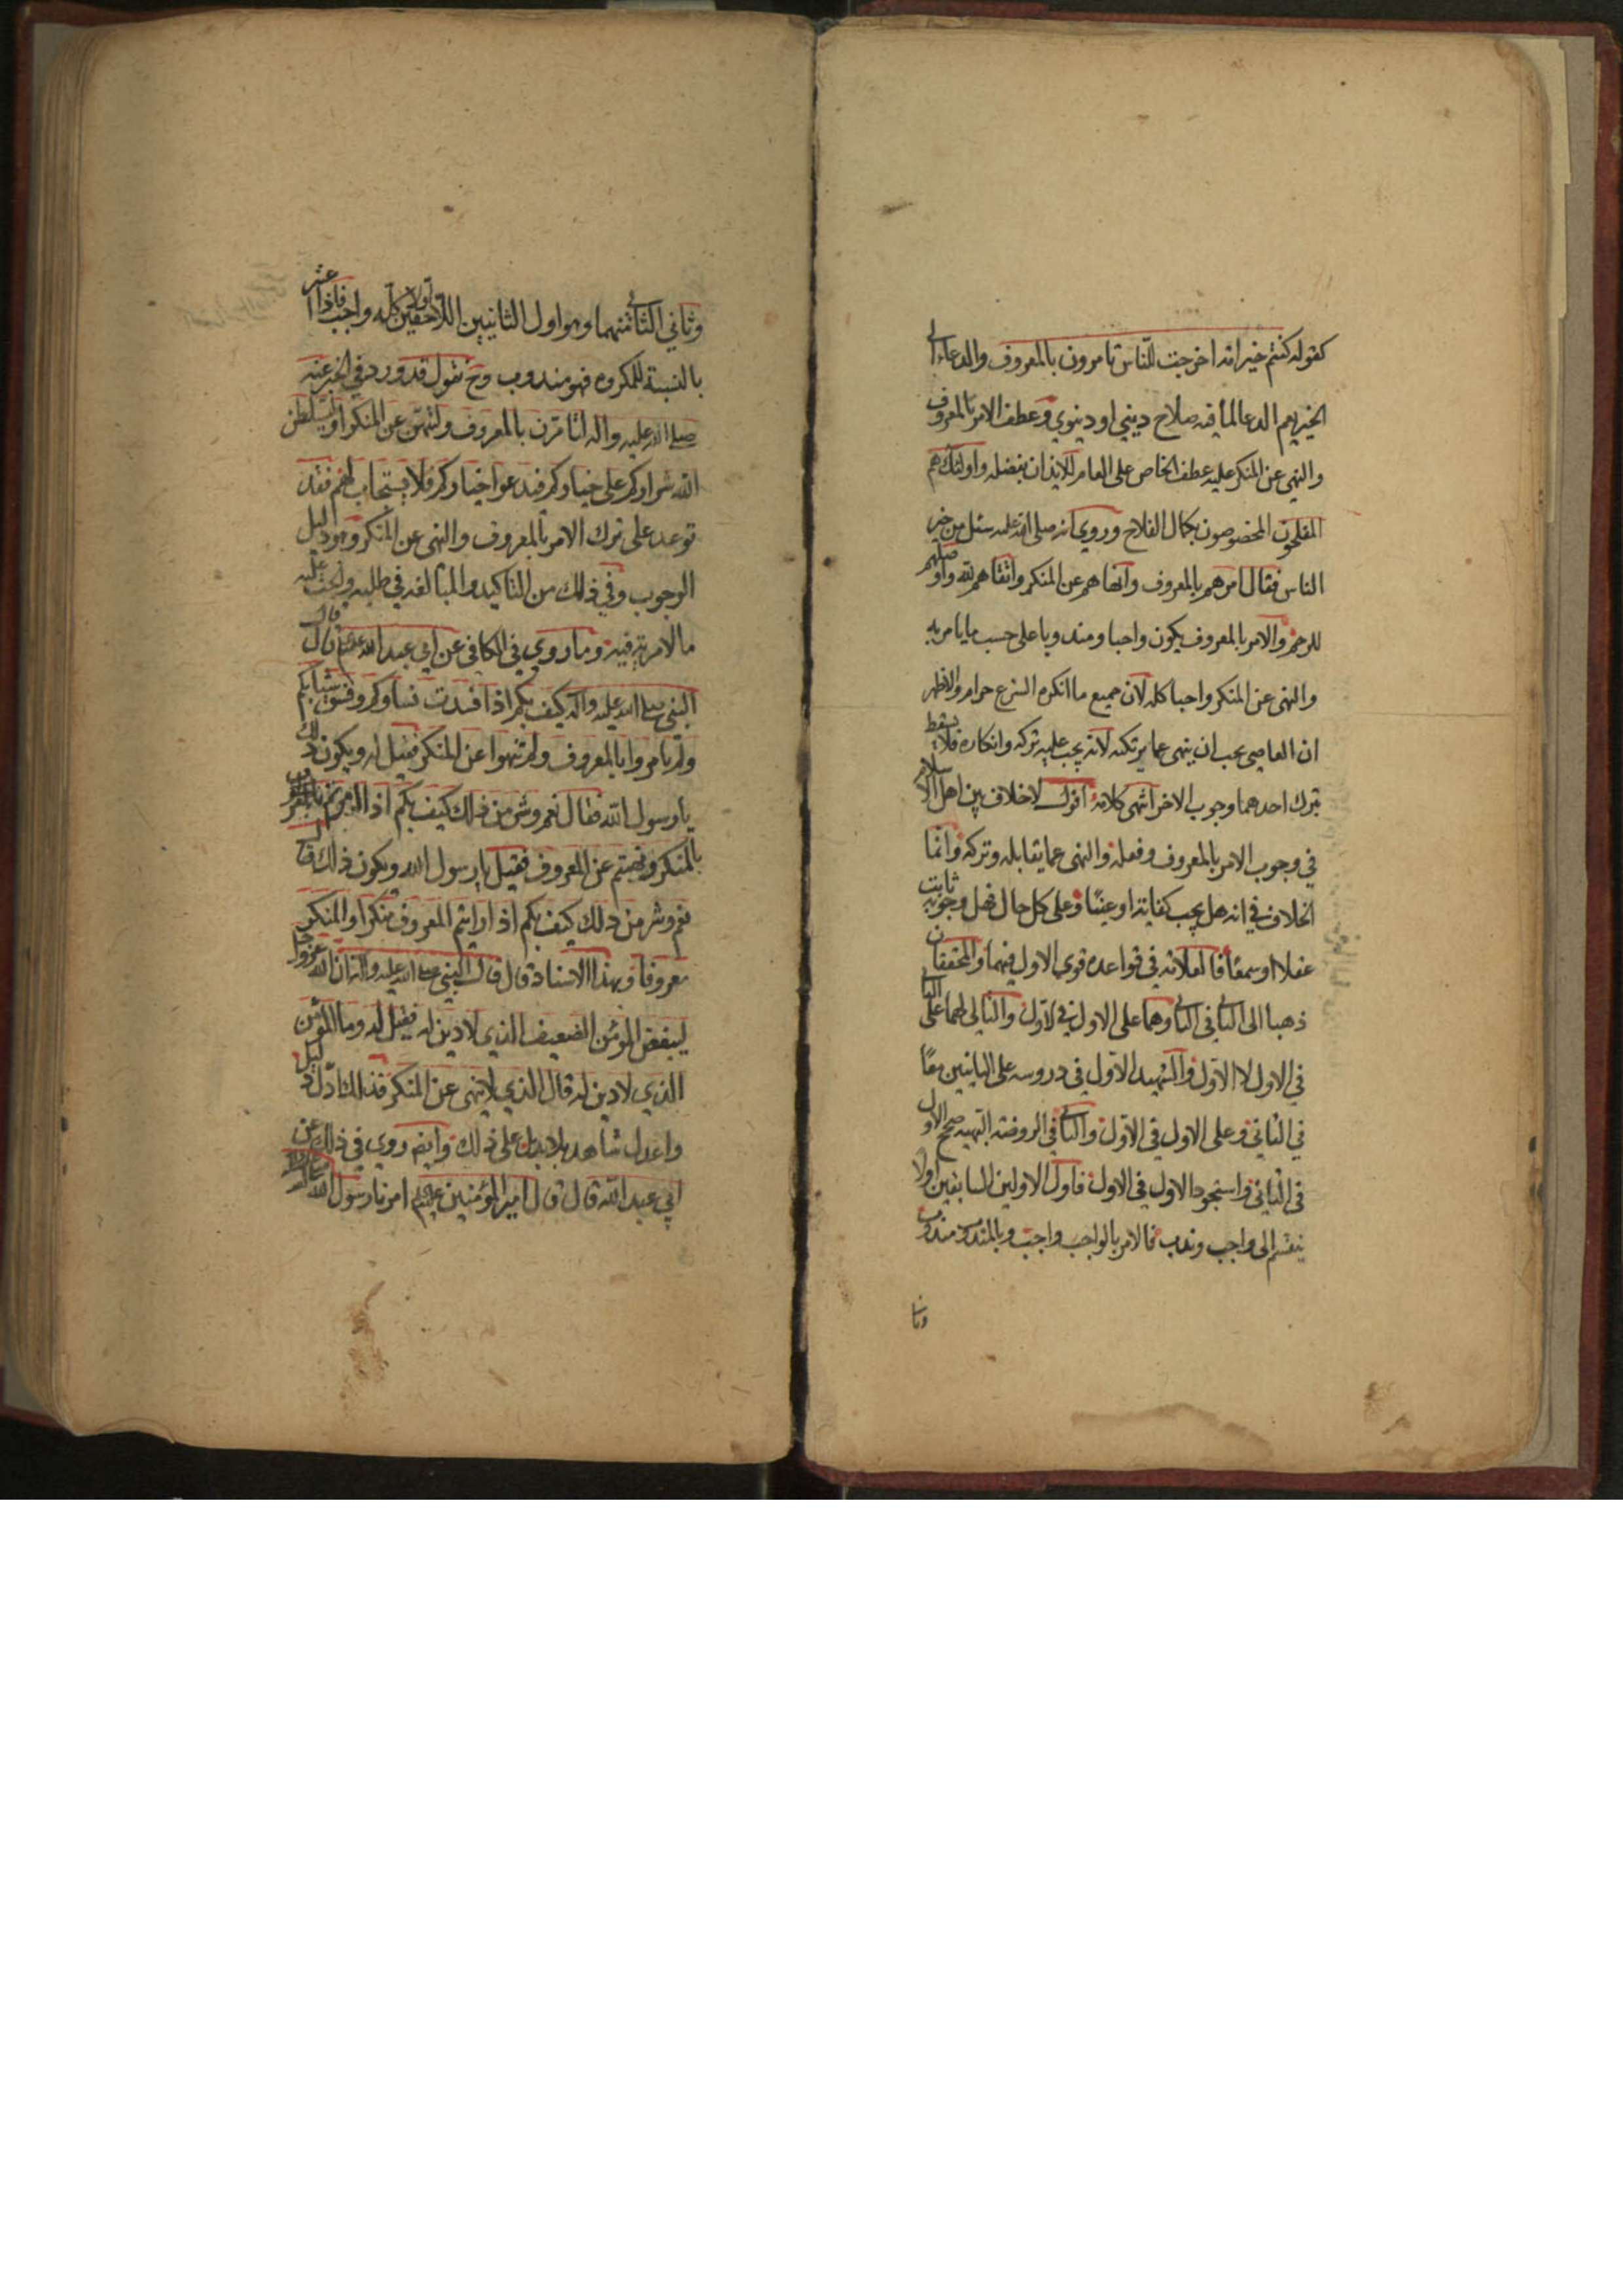 كقوله كنتم خير امة اخرجت للناس تامرون بالمعروف والدعاء الى
الخير يعم الدعا لما فيه صلاح ديني او دنيوي وعطف الامر بالمعروف
والنهي عن المنكر عليه عطف الخاص على العام للايذان بفضله واولئك هم
المفلحون المخصوصون بكمال الفلاح وروي انه صلى الله عليه سئل من خير
الناس فقال امرهم بالمعروف وانهاهم عن المنكر واتقاهم لله واوصلهم
للرحم والامر بالمعروف يكون واجبا ومندوبا على حسب ما يامر به
والنهى عن المنكر واجبا كله لان جميع ما انكره الشرع حرام والاظهر
ان العاصى يجب ان ينهى عما يرتكبه لانه يجب عليه تركه وانكاره فلا يسقط
بترك احدهما وجوب الاخر انتهى كلامه اقول لا خلاف بين اهل الاسلام
في وجوب الامر بالمعروف وفعله والنهى عما يقابله وتركه وانما
الخلاف في انه هل يجب كفاية او عينا وعلى كل حال فهل وجوبه ثابت
عقلا او سمعا فالعلامة في قواعده قوى الاول فيهما والمحققان
ذهبا الى الثاني في الثاني وهما على الاول في الاول والثاني لهما على الثاني
في الاول لا الاول والشهيد الاول في دروسه على الثانيين معا
في الثاني وعلى الاول في الاول والثاني في الروضة البهية صحح الاول
في الثاني واستجود الاول في الاول فاول الاولين السابقين اولا
ينقسم الى واجب وندب فالامر بالواجب واجب وبالمندوب مندوب
وثاني
وثاني الثاني منهما وهو اول الثانيين اللاحقين اولا كله واجب
بالنسبة للمكروه فهو مندوب وح نقول قد ورد في الخبر عنه
صلى الله عليه واله لتامرن بالمعروف ولتنهن عن المنكر او ليسلطن
الله شراركم على خياركم فيدعو اخياركم فلا يستجاب لهم فقد
توعد على ترك الامر بالمعروف والنهى عن المنكر وهو دليل
الوجوب وفي ذلك من التاكيد والمبالغة في طلبه والحث عليه
ما لامرية فيه وما روي في الكافي عن ابي عبد الله قال قال
النبي صلى الله عليه واله كيف بكم اذا فسدت نساوكم وفسق شبابكم
ولم تامروا بالمعروف ولم تنهوا عن المنكر فقيل له ويكون ذلك
يا رسول الله فقال نعم وشر من ذلك كيف بكم اذا امرتم
بالمنكر ونهيتم عن المعروف فقيل يا رسول الله ويكون ذلك قال
نعم وشر من ذلك كيف بكم اذا رايتم المعروف منكرا والمنكر
معروفا وبهذا الاسناد قال قال النبي صلى الله عليه واله ان الله عزوجل
ليبغض المؤمن الضعيف الذي لا دين له فقيل له وما المؤمن
الذي لا دين له قال الذي لا ينهى عن المنكر فذلك ادل دليل
واعدل شاهد بلا بديل على ذلك وايضا روي في ذلك عن
ابي عبد الله قال قال امير المؤمنين امرنا رسول الله